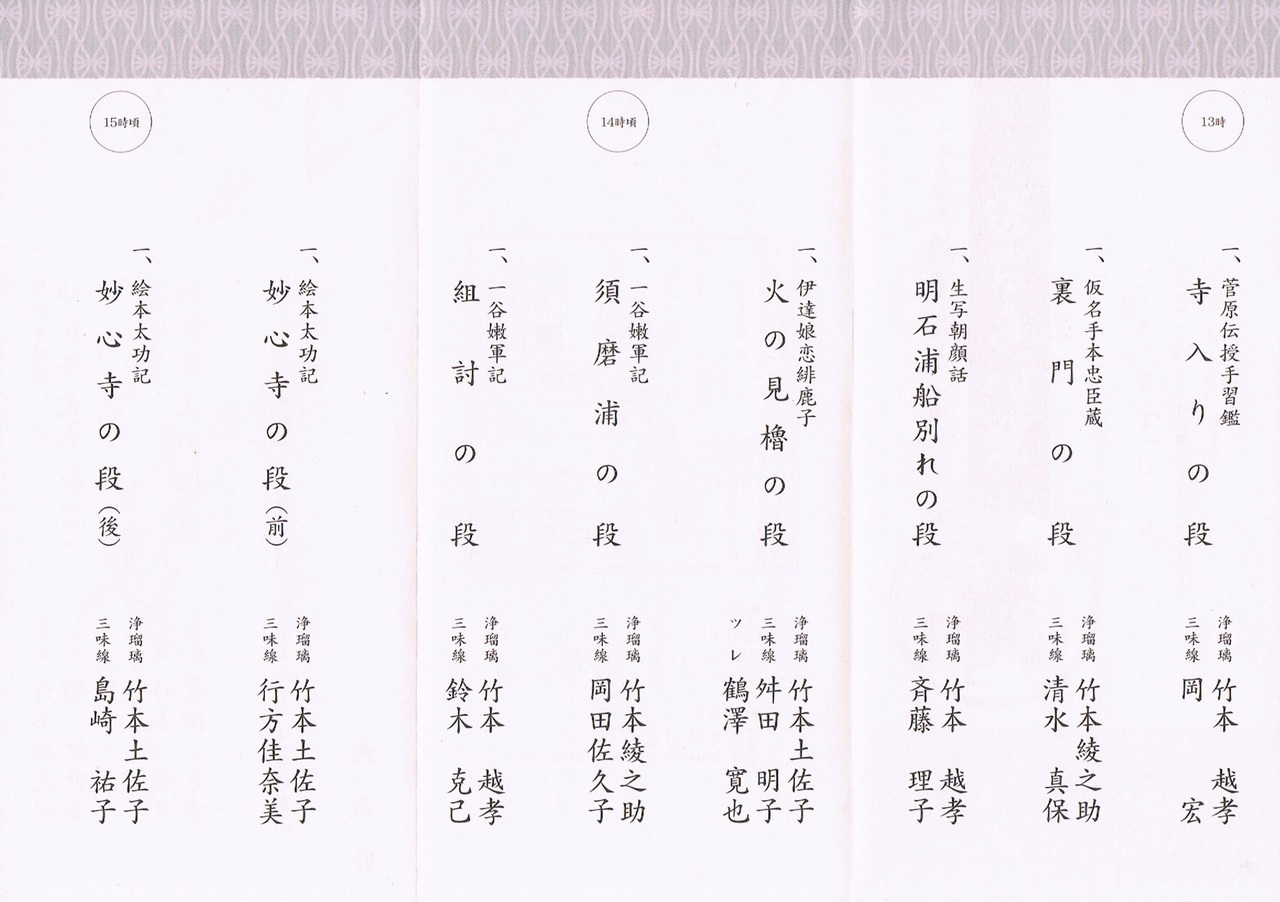 13時
一、菅原伝授手習鑑
寺入りの段
浄瑠璃 竹本 越孝
三味線 岡 宏
一、仮名手本忠臣蔵
裏門の段
浄瑠璃 竹本綾之助
三味線 清水 真保
一、生写朝顔話
明石浦船別れの段
浄瑠璃 竹本 越孝
三味線 斉藤 理子
一、伊達娘恋緋鹿子
火の見櫓の段
浄瑠璃 竹本土佐子
三味線 舛田 明子
ツレ 鶴澤 寛也
14時頃
一、一谷嫩軍記
須磨浦の段
浄瑠璃 竹本綾之助
三味線 岡田佐久子
一、一谷嫩軍記
組討の段
浄瑠璃 竹本 越孝
三味線 鈴木 克己
一、絵本太功記
妙心寺の段(前)
浄瑠璃 竹本土佐子
三味線 行方佳奈美
15時頃
一、絵本太功記
妙心寺の段(後)
浄瑠璃 竹本土佐子
三味線 島崎 祐子